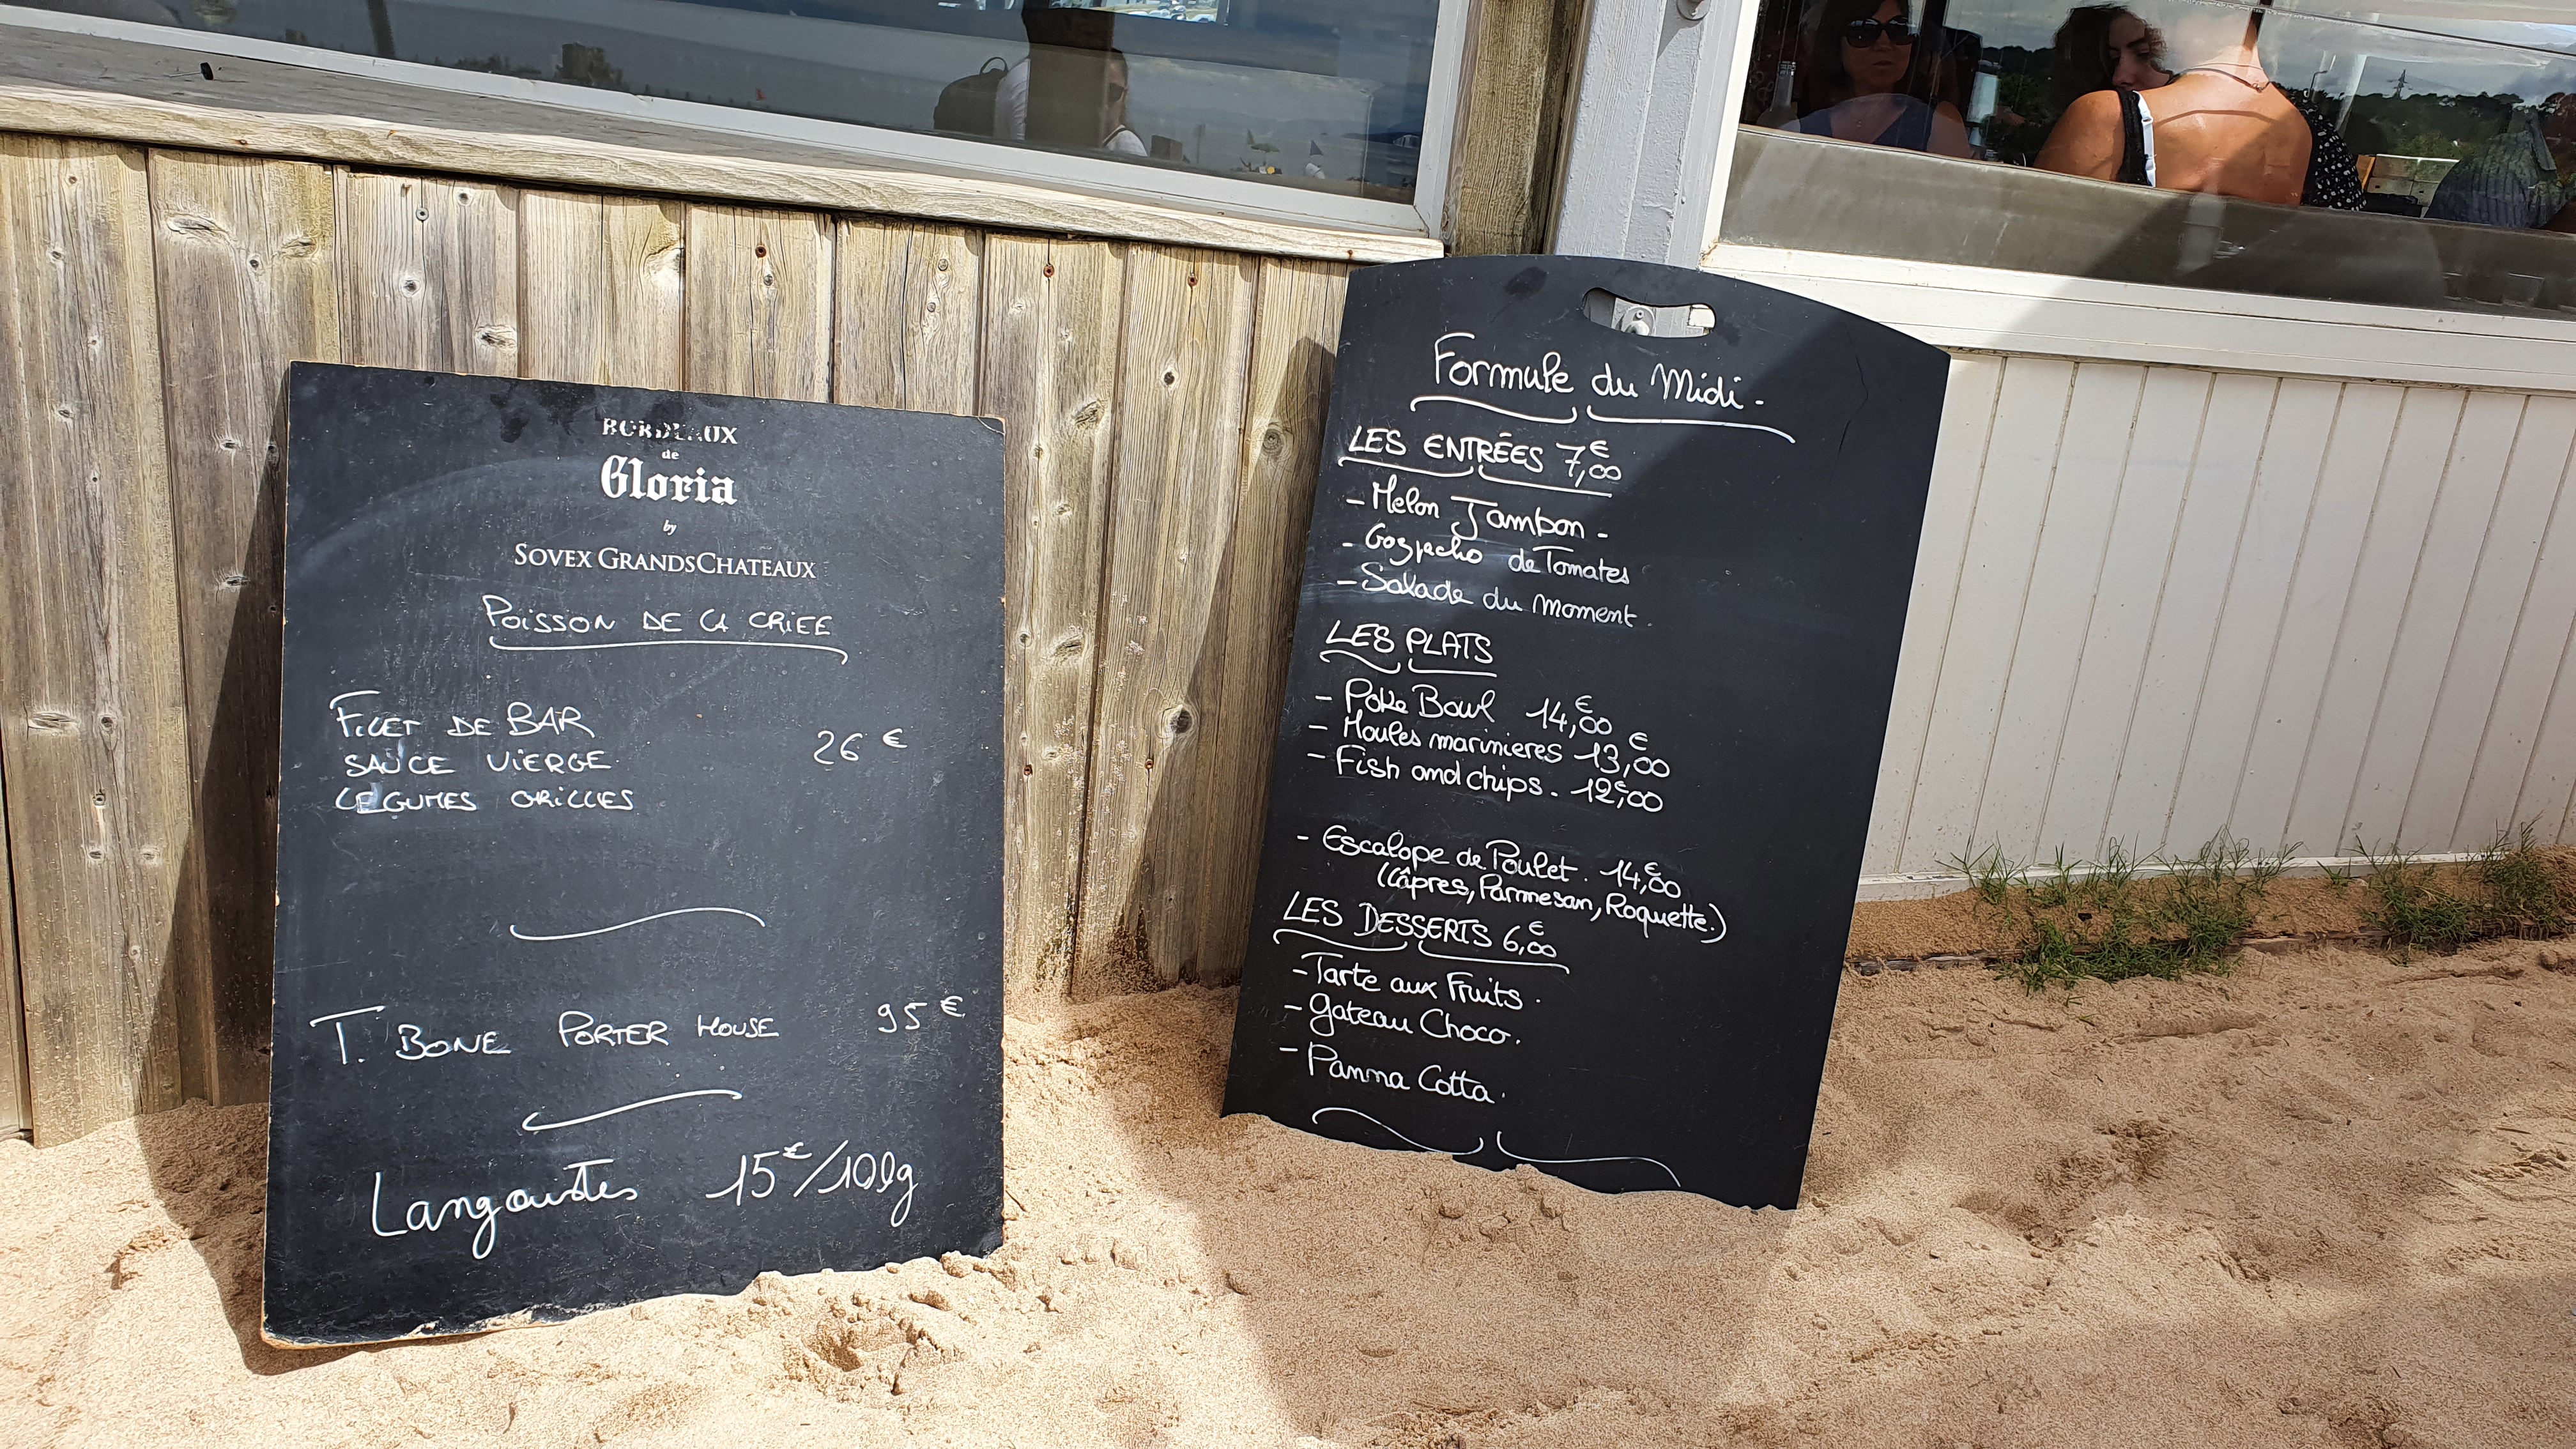 BORDEAUX
de
Gloria
by
SOVEX GRANDSCHATEAUX
POISSON DE LA CRIEE
FILET DE BAR
SAUCE VIERGE 26 €
LEGUMES GRILLES
T. BONE PORTER HOUSE 95 €
Langoustes 15€/100g
Formule du Midi -
LES ENTRÉES 7,00€
- Melon Jambon -
- Gazpacho de Tomates
- Salade du Moment.
LES PLATS
- Poke Bowl 14,00€
- Moules marinieres 13,00€
- Fish and chips . 12,00€
- Escalope de Poulet . 14,00€
(Câpres, Parmesan, Roquette.)
LES DESSERTS 6,00€
- Tarte aux Fruits .
- Gateau Choco .
- Panna Cotta .